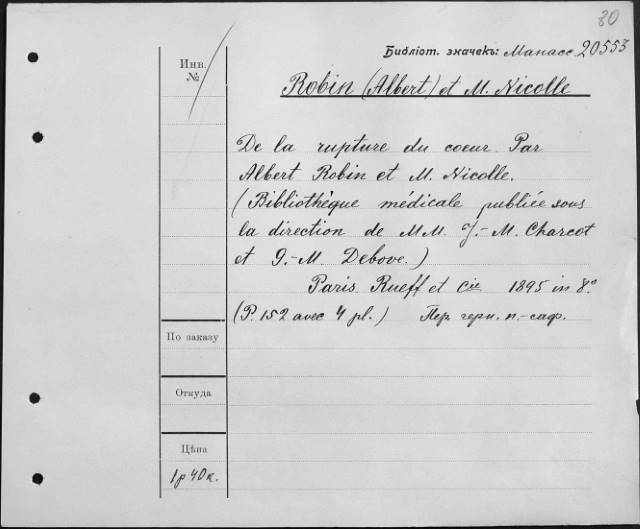 80
Библіот. значекъ: Манасс. 20553
Инв.
№
Robin (Albert) et M. Nicolle
De la rupture du coeur. Par
Albert Robin et M. Nicolle.
(Bibliothèque médicale publiée sous
la direction de MM. J.-M. Charcot
et G.-M. Debove.)
Paris. Rueff et Cie 1895 in 8.°
(P. 152 avec 4 pl.) Пер. черн. п.-саф.
По заказу
Откуда
Цѣна
1 р 40 к.